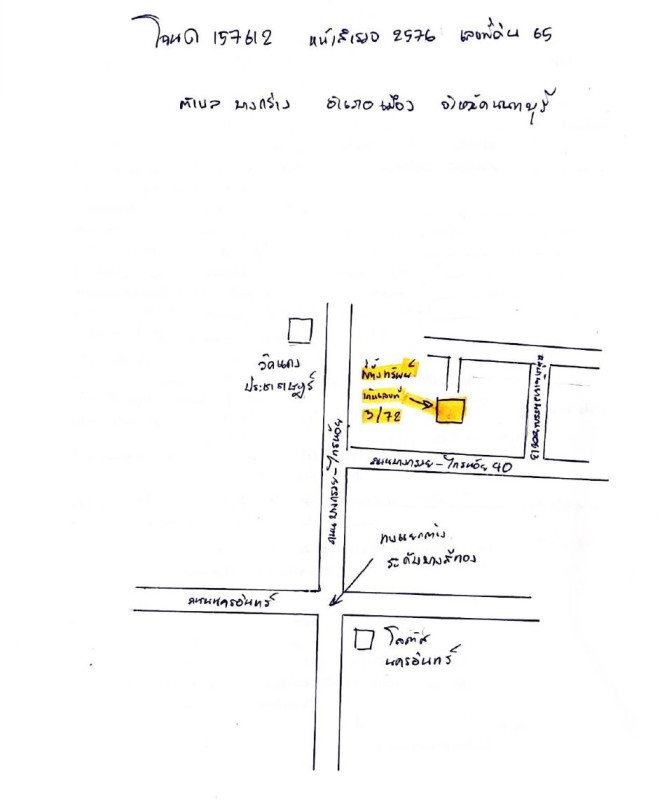 โฉนด 157612 หน้าสำรวจ 2576 เลขที่ดิน 65
ตำบล บางกร่าง อำเภอ เมือง จังหวัดนนทบุรี
วัดแดง
ประชาราษฎร์
ที่ตั้งทรัพย์
บ้านเลขที่
3/72
ถนนบางกรวย-ไทรน้อย 40
ถนน บางกรวย-ไทรน้อย
ทางแยกต่าง
ระดับบางสีทอง
ถนนนครอินทร์
โลตัส
นครอินทร์